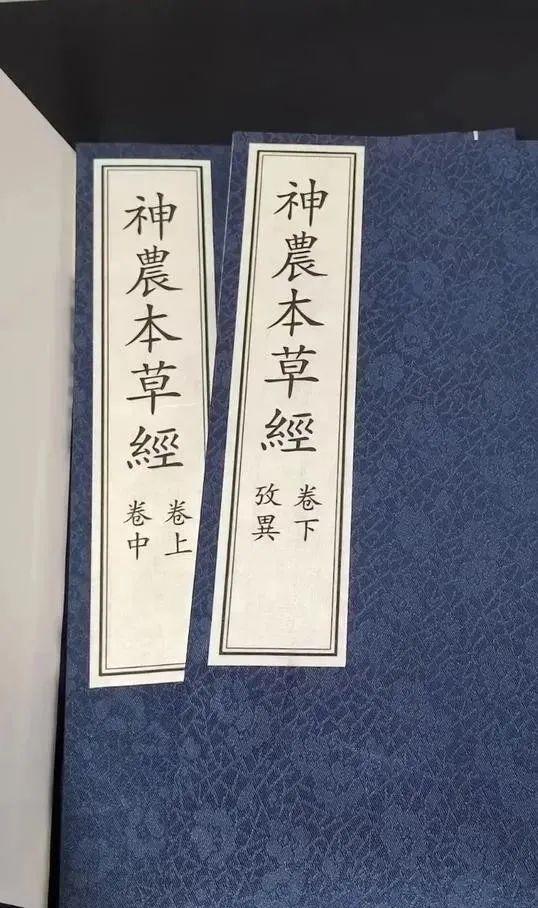 神農本草經
卷上
卷中
神農本草經
卷下
攷異